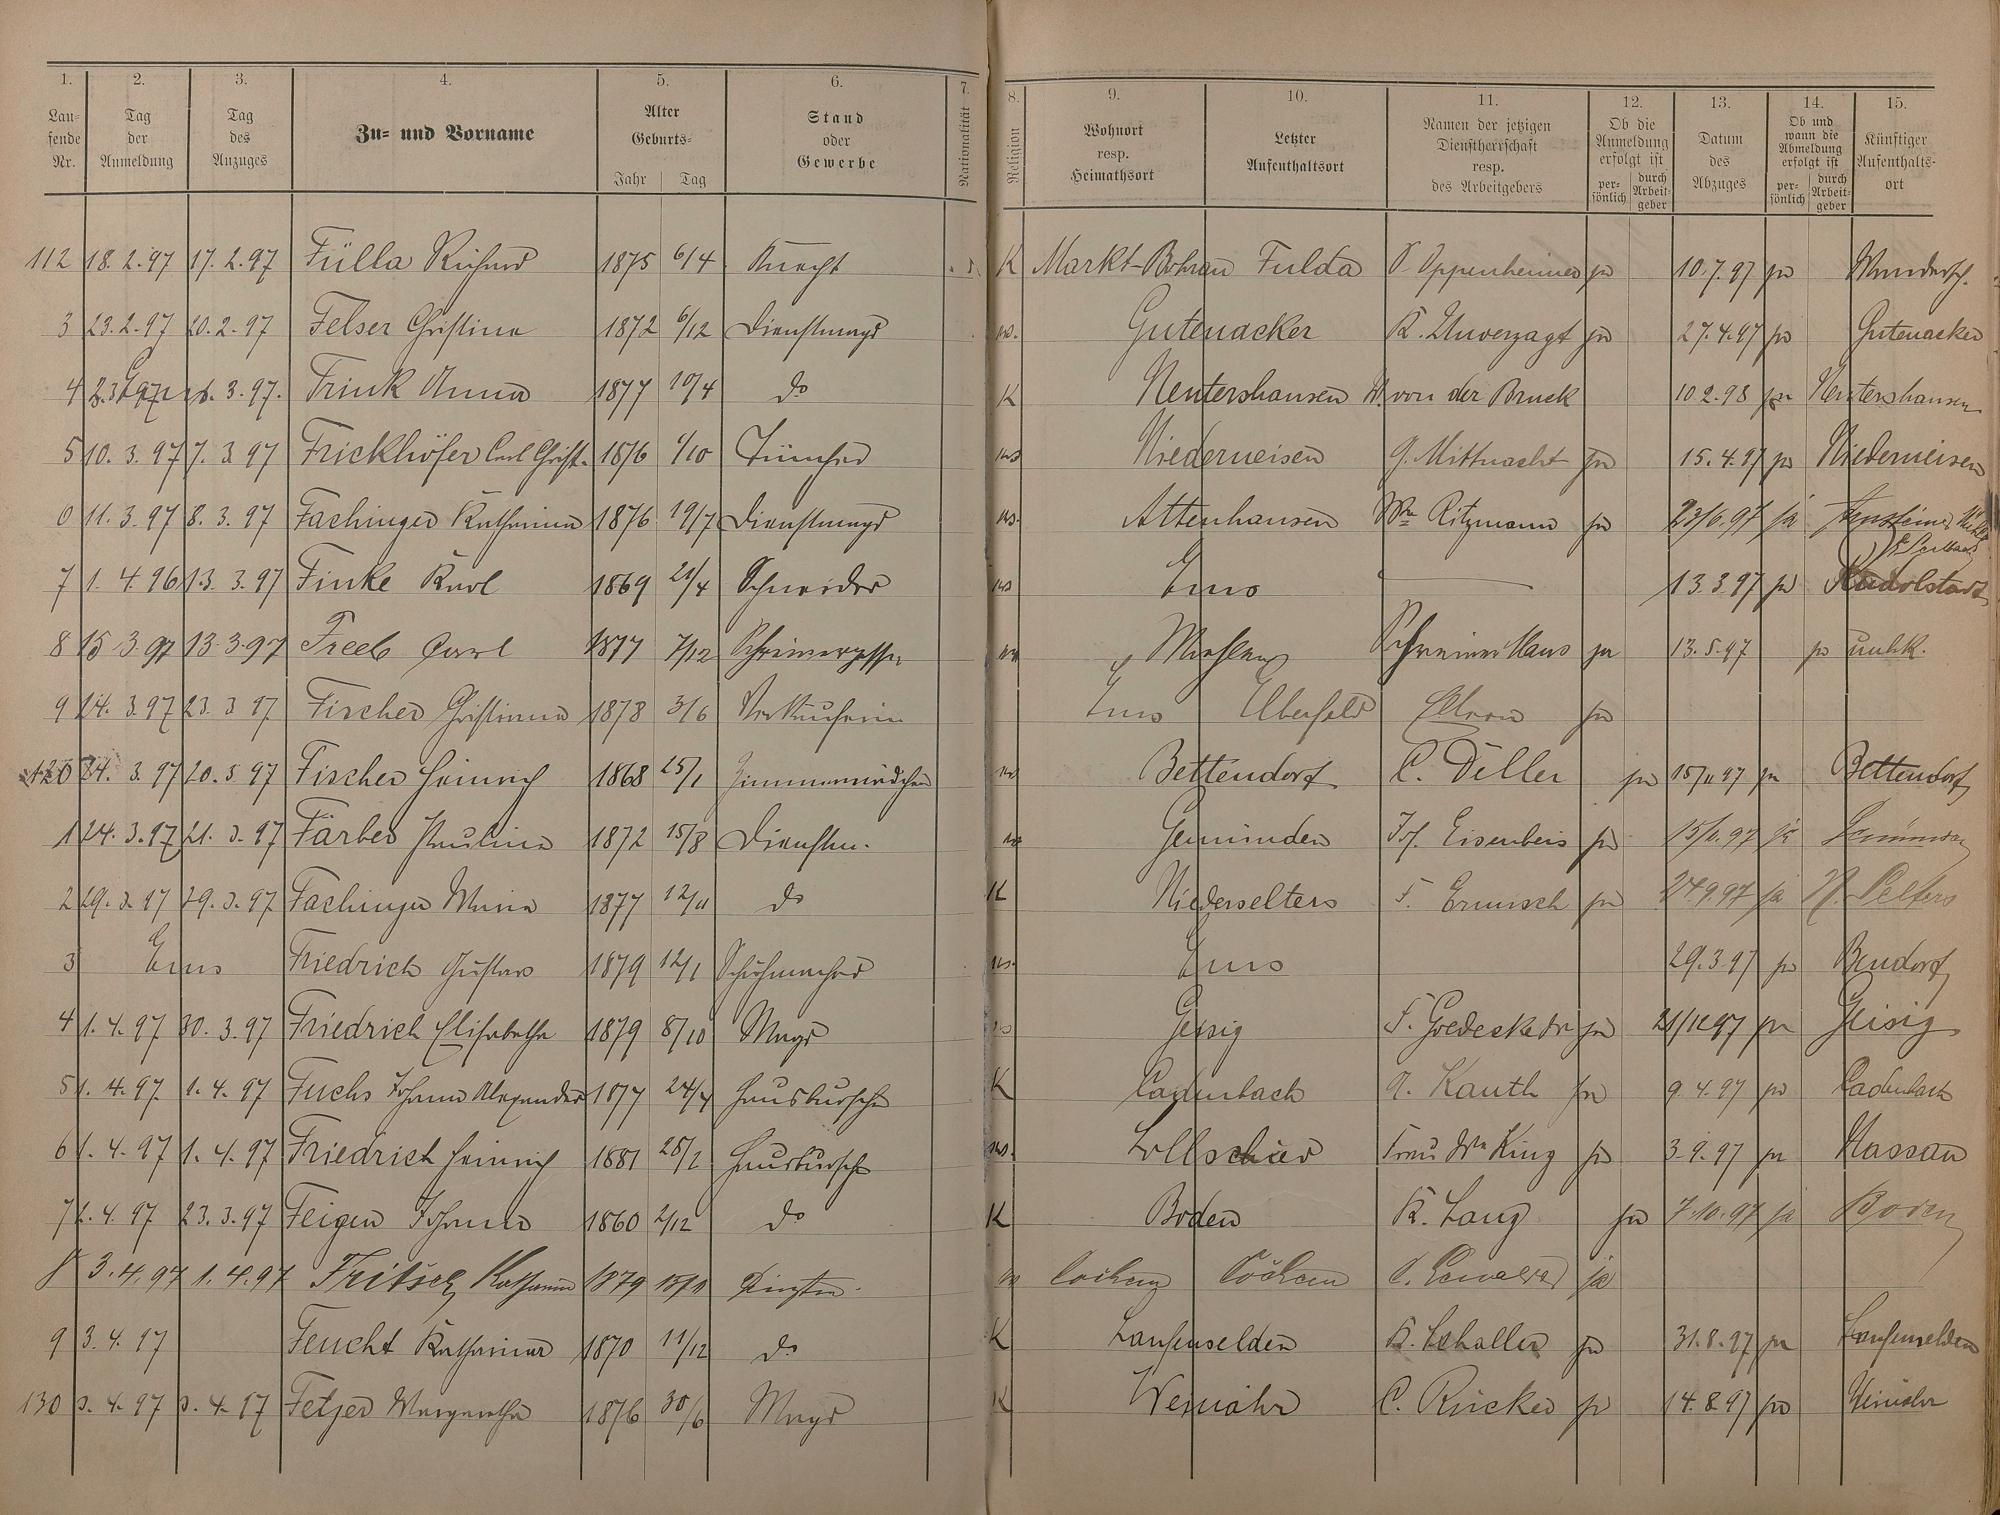 1. 2. 3. 4. 5. 6. 7. 8. 9. 10. 11. 12. 13. 14. 15.
Lau- fende Nr. Tag der Anmeldung Tag des Anzuges Zu- und Vorname Alter Geburts- Jahr Tag Stand oder Gewerbe Nationalität Religion Wohnort resp. Heimathsort Letzter Aufenthaltsort Namen der jetzigen Dienstherrschaft resp. des Arbeitgebers Ob die Anmeldung erfolgt ist per- sönlich durch Arbeit- geber Datum des Abzuges Ob und wann die Abmeldung erfolgt ist per- sönlich durch Arbeit- geber Künftiger Aufenthalts- ort
112 18.2.97 17.2.97 Fülla Richard 1875 6/4 Knecht K Markt-Bohrau Fulda S. Oppenheimer ja 10.7.97 ja Wandersch.
3 23.2.97 20.2.97 Felser Christina 1872 6/12 Dienstmagd ev. Gutenacker K. Unverzagt ja 27.4.97 ja Gutenacker
4 3.97. Frink Anna 1877 10/4 do K Nentershausen W. von der Bruck 10.2.98 ja Nentershausen
5 10.3.97 7.3.97 Frickhöfer Carl Christ. 1876 1/10 Tüncher ev Niederneisen G. Mittnacht ja 15.4.97 ja Niederneisen
6 11.3.97 8.3.97 Fachinger Katharina 1876 19/7 Dienstmagd ev. Attenhausen Wwe Ritzmann ja 23/6.97 ja
7 1.4.96 13.3.97 Finke Karl 1869 21/4 Schneider ev Ems 13.3.97 ja Rudolstadt
8 15.3.97 13.3.97 Freeb Carl 1877 7/12 Schreinergeselle ev Miehlen Schreiner Maus ja 13.5.97 ja unbk.
9 24.3.97 23.3.97 Fischer Christiana 1878 3/6 Verkäuferin Ems Elberfeld ja
120 24.3.97 20.3.97 Fischer Heinrich 1868 25/1 Zimmermädchen ev Bettendorf C. Diller ja 15/11 97 ja Bettendorf
1 24.3.97 21.3.97 Färber Paulina 1872 15/8 Dienstm. ev Gemünden Jos. Eisenbeis ja 97 ja Gemünden
2 29.3.97 29.3.97 Fachinger Maria 1877 12/11 do K Niederselters F. Ermisch ja 24.9.97 ja N. Selters
3 Ems Friedrich Gustav 1879 12/1 Schuhmacher ev. Ems 29.3.97 ja Bendorf
4 1.4.97 30.3.97 Friedrich Elisabetha 1879 8/10 Magd ev Geisig F. Goedecke ja 21/12 97 ja Geisig
5 1.4.97 1.4.97 Fuchs Johann Alexander 1877 24/4 Hausbursche K Cadenbach A. Kauth ja 9.4.97 ja Cadenbach
6 1.4.97 1.4.97 Friedrich Heinrich 1881 28/2 Hausbursche ev. Lollschied Frau Ww King ja 3.9.97 ja Nassau
7 2.4.97 23.3.97 Feigen Johann 1860 2/12 do K Boden K. Lang ja 7.10.97 ja Boden
8 3.4.97 1.4.97 Fritsch Katharina 1879 Dienstm. ev Cochem Cochem ja
9 3.4.97 Feucht Katharina 1870 11/12 do K Laufenselden K. Schaller ja 31.8.97 ja Laufenselden
130 3.4.97 3.4.97 Fetzer Margaretha 1876 30/6 Magd K Weinähr C. Rücker ja 14.8.97 ja Weinähr